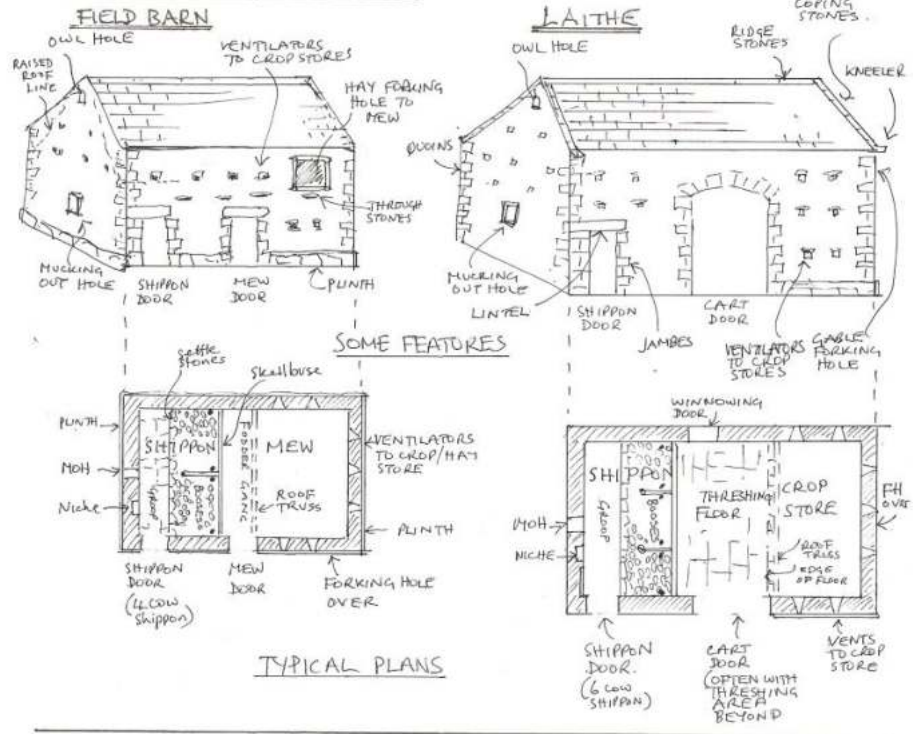 FIELD BARN
OWL HOLE
RAISED
ROOF
LINE
VENTILATORS
TO CROP STORES
HAY FORKING
HOLE TO
MEW
THROUGH
STONES
MUCKING
OUT HOLE
SHIPPON
DOOR
MEW
DOOR
PLINTH
LAITHE
OWL HOLE
RIDGE
STONES
COPING
STONES.
KNEELER
QUOINS
MUCKING
OUT HOLE
LINTEL
SHIPPON
DOOR
JAMBES
CART
DOOR
VENTILATORS
TO CROP
STORES
GABLE
FORKING
HOLE
SOME FEATURES
Settle
Stones
Skellbuse
PLINTH
MOH
Niche
SHIPPON
GROOP
BOOSES
FODDER GANG
MEW
ROOF
TRUSS
VENTILATORS
TO CROP/HAY
STORE
PLINTH
SHIPPON
DOOR
(4 COW
Shippon)
MEW
DOOR
FORKING HOLE
OVER
WINNOWING
DOOR
MOH
NICHE
SHIPPON
GROOP
BOOSES
THRESHING
FLOOR
CROP
STORE
ROOF
TRUSS
EDGE
OF FLOOR
FH
OVER
SHIPPON
DOOR.
(6 COW
SHIPPON)
CART
DOOR
(OFTEN WITH
THRESHING
AREA
BEYOND
VENTS
TO CROP
STORE
TYPICAL PLANS